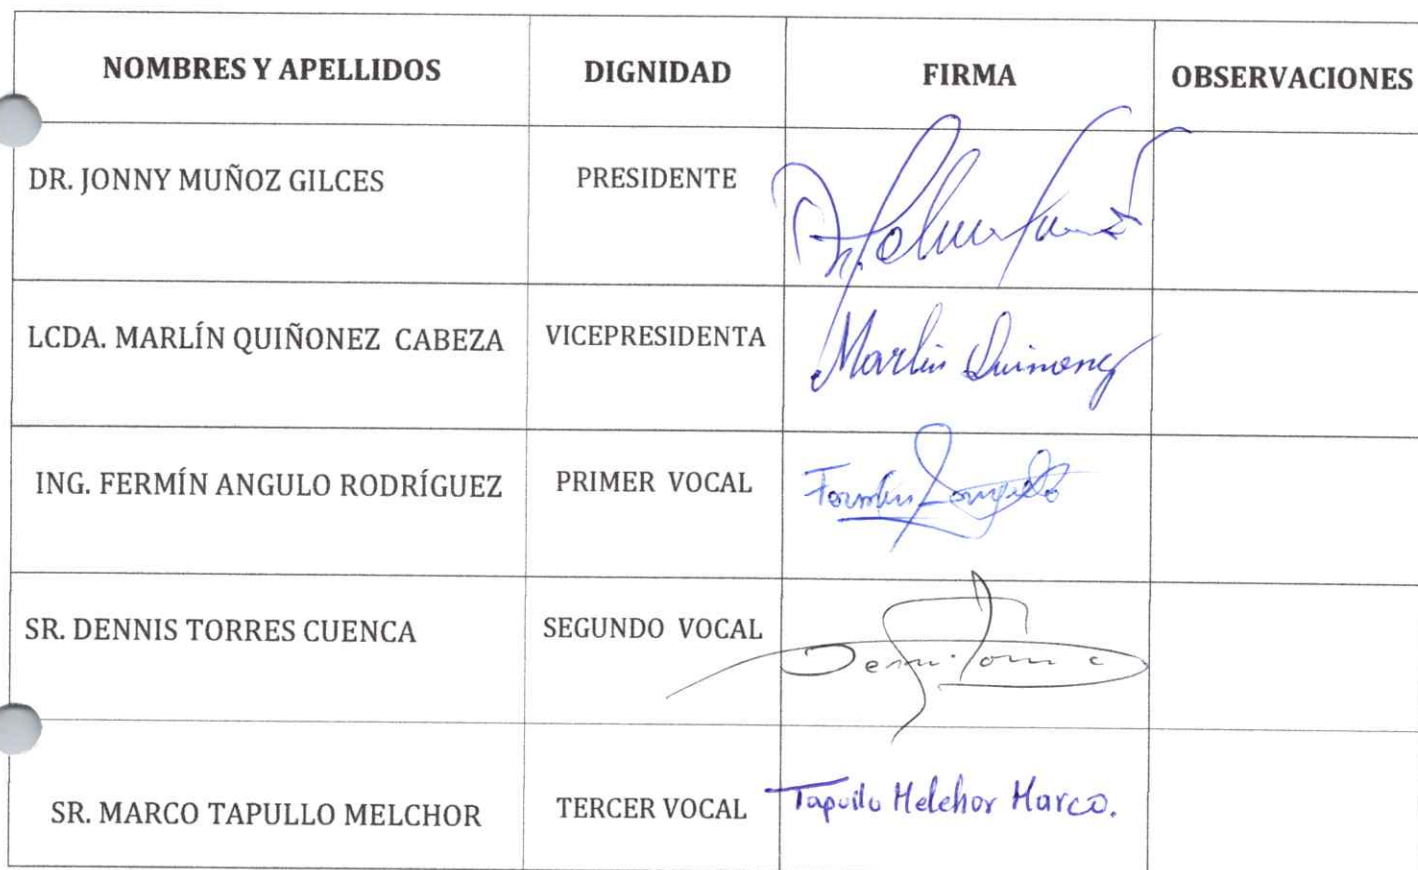 NOMBRES Y APELLIDOS DIGNIDAD FIRMA OBSERVACIONES
DR. JONNY MUÑOZ GILCES PRESIDENTE
LCDA. MARLÍN QUIÑONEZ CABEZA VICEPRESIDENTA Marlin Quinonez
ING. FERMÍN ANGULO RODRÍGUEZ PRIMER VOCAL Fermín Angulo
SR. DENNIS TORRES CUENCA SEGUNDO VOCAL
SR. MARCO TAPULLO MELCHOR TERCER VOCAL Tapullo Melchor Marco.